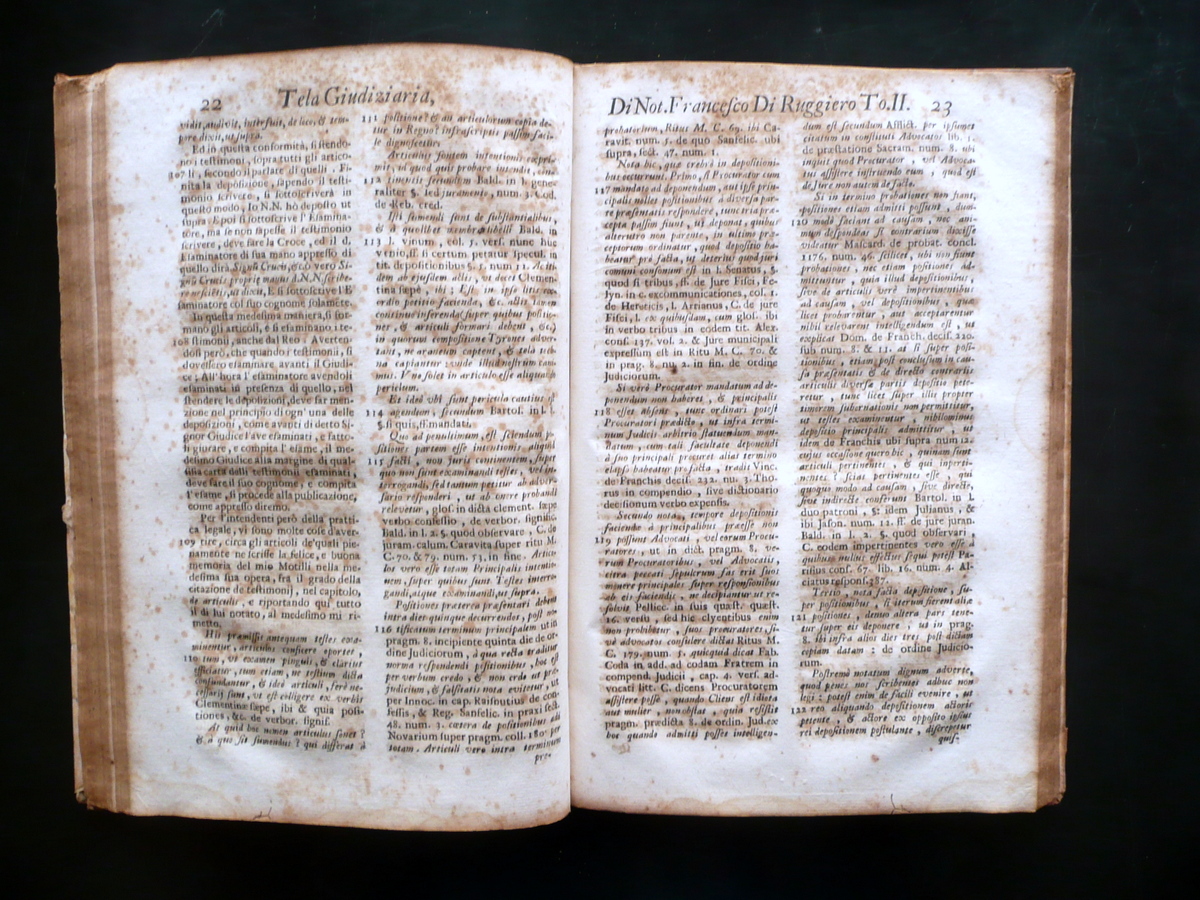 22 Tela Giudiziaria,
vidit, audivit, interfuit, de loco, & tem-
pore dixit, ut supra.
Ed in questa conformità, si stendo-
no i testimoni, sopra tutti gli artico-
107 li, secondo il parlare di quelli. Fi-
nita la deposizione, sapendo il testi-
monio scrivere, si sottoscriverà in
questo modo, Io N.N. hò deposto ut
supra: E poi si sottoscrive l' Esamina-
tore, ma se non sapesse il testimonio
scrivere, deve fare la Croce, ed il d.
Esaminatore di sua mano appresso di
quello dirà,
saminatore col suo cognome solamẽte,
In questa medesima maniera, si for-
mano gli articoli, e si esaminano i te-
108 stimonii, anche dal Reo. Averten-
dosi però, che quando i testimonii, si
dovessero esaminare avanti il Giudi-
ce, All' hora l'esaminatore avendoli
esaminati in presenza di quello, nel
stendere le deposizioni, deve far men-
zione nel principio di ogn' una delle
deposizioni, come avanti di detto Si-
gnor Giudice l'ave esaminati, e fatto-
li giurare, e compita l' esame, il me-
desimo Giudice alla margine di qual-
sisia carta delli testimonii esaminati,
deve fare il suo cognome, e compita
l'esame, si procede alla publicazione,
come appresso diremo.
Per l'intendenti però della pratti-
ca legale, vi sono molte cose d'aver-
109 tire, circa gli articoli de' quali pie-
namente ne scrisse la felice, e buona
memoria del mio Motilli nella me-
desima sua opera, fra il grado della
citazione de testimonj, nel capitolo,
de articulis, e riportando qui tutto
il di lui notato, al medesimo mi ri-
metto,
His præmissis antequam testes exa-
minentur, articulos conficere oportet,
110 tum, ut examen pinguius, & clarius
efficiatur, tum etiam, ne testium dicta
confundantur, & ideò articuli, ferè ne-
cessarij sunt, ut est colligere ex verbis
Clementinæ sæpe, ibi & quia posi-
tiones, &c. de verbor. signif.
At quid hoc nomen articulus sonet?
& à quo sit sumendus? qui differat à
111 positione? & an articulorum copia de-
tur in Regno? infrascriptis passim faci-
le dignoscetis:
Articulus
112 Bald. in l. gene-
raliter §. sed juramento, num. 3. Cod.
de Reb. cred.
Isti sumendi sunt de substantialibus,
& à quolibet membro libelli Bald. in
113 l. vinum, col. 5. vers. nunc hic
venio, ff. si certum petatur Specul. in
tit. depositionibus §. 5. num. 11.
tina sæpe, ibi:
ordio petitio facienda, &c. actis tamen
continuò inferenda super quibus positio-
nes, & articuli formari debent, &c.)
in quorum compositione Tyrones adver-
tant, ne araneum captent, & tela
periculum.
Et ideò ubi sunt pericula cautius est
114 agendum, secundum Bartol. in l. 1.
§. si quis, ff. mandati.
Quo ad penultimum, est sciendum
115 facti, non Juris
relevetur, glos. in dicta clement. sæpe
verbo confessio, de verbor. signific.
Bald. in l. 2. §. quod observare, C. de
juram. calum. Caravita super ritu M.
C. 70. & 79. num. 53. in fine.
los vero esse totum Principalis intentio-
nem, super quibus sunt Testes interro-
gandi, atque examinandi, ut supra.
Positiones præterea præsentari debent
intra dies quinque decurrendos, post no-
116 tificatum terminum principalem ut in
pragm. 8. incipiente quinta die de or-
dine Judiciorum, à qua recta traditur
norma respondendi positionibus, hoc est
per verbum credo & non credo ut per-
judicium, & falsitatis nota evitetur, ut
per Innoc. in cap. Raisnutius de con-
fessis, & Reg. Sanfelic. in praxi sect.
48. num. 3. cætera de positionibus adi
Novarium super pragm. coll. 180. per
totam. Articuli vero intra terminum
pro-
Di Not. Francesco Di Ruggiero To. II. 23
probatorium, Ritus M. C. 69. ibi Ca-
ravit. num. 5. de quo Sanfelic. ubi
supra, sect. 47. num. 1.
Nota hic, quæ crebrò in depositioni-
bus occurrunt. Primo, si Procurator cum
117 mandato ad deponendum, aut ipse prin-
cipalis nollet positionibus à diversa par-
te præsentatis respondere, tunc tria præ-
cepta passim fiunt, ut deponat, quibus
alterutro non parente, in ultimo præ-
ceptorum ordinatur, quod depositio ha-
beatur pro facta, ut deterius quod juri
comuni consonum est in l. Senatus, §.
quod si tribus, ff. de Jure Fisci, Fe-
lyn. in c. excommunicationes, col. 1.
de Hereticis, l. Arrianus, C. de jure
Fisci, l. ex quibusdam, cum glos. ibi
in verbo tribus in eodem tit. Alex.
conf. 137. vol. 2. & Jure municipali
expressum est in Ritu M. C. 70. &
in prag. 8. nu 2. in fin. de ordine
Judiciorum.
Si verò Procurator mandatum ad de-
ponendum non haberet, & principalis
118 esset absens, tunc ordinari potest
Procuratori prædicto, ut infra termi-
num Judicis arbitrio statuendum man-
datum, cum tali facultate deponendi
à suo principali procuret alias termino
elapso habeatur pro facta, tradit Vinc.
de Franchis decis. 232. nu. 3. Tho-
rus in compendio, sive dictionario
decisionum verbo expensis.
Secundo nota, tempore depositionis
faciendæ à principalibus præesse non
119 possunt Advocati, vel eorum Procu-
ratores, ut in dict. pragm. 8. ve-
rum Procuratoribus, vel Advocatis,
citra peccati sepulcrum fas erit suos
monere principales super responsionibus
ab eis faciendis, ne decipiantur ut re-
solvit Pellicc. in suis quæst. quæst.
16. versu, sed hic clyentibus enim
non prohibetur, suos procuratores, si-
vè advocatos consulere dictat Ritus M.
C. 179. num. 5. quicquid dicat Fab.
Coda in add. ad codam Fratrem in
compend. Judicii, cap. 4. vers. ad-
vocati litt. C. dicens Procuratorem
assistere posse, quando Cliens est idiota
aut mulier, non obstat, quia resistit
pragm. prædicta 8. de ordin. Jud. ex
hoc quando admitti posset intelligen-
dum est secundum Afflict. per ipsunet
citatum in constitut. Advocator. lib. 1.
de præstatione Sacram. num. 8. ubi
inquit quod Procurator, vel Advoca-
tus assistere instruendo eum, quod est
de Jure non autem de facto.
Si in termino probationes non fiant,
positiones etiam admitti possunt, dum-
120 modo faciant ad causam, nec ani-
mum despondeas si contrarium dixisse
videatur Mascard. de probat. concl.
1176. num. 46. scilicet, ubi non fiunt
probationes, nec etiam positiones ad-
mittuntur, quia illud depositionibus,
sive de articulis verè impertinentibus
ad causam, vel depositionibus, quæ
licet probarentur, aut acceptarentur
nihil relevarent intelligendum est, ut
explicat Dom. de Franch. decis. 220.
sub num. 8. & 11. at si super posi-
tionibus, etiam post conclusum in cau-
sa præsentatis & de directo contrariis
articulis diversæ partis depositio pete-
retur, tunc licet super illis propter
timorem subornationis non permittitur,
ut testes examinentur, nihilominus
depositio principalis admittitur, ut
idem de Franchis ubi supra num 12.
cujus occasione quæro hic, quinam sunt
articuli pertinentes, & qui inperti-
nentes? Scias pertinentes esse, qui
quoquo modo ad causam, sive directe,
sive indirecte conferunt Bartol. in l.
duo patroni, §: idem Julianus, &
ibi Jason. num. 12. ff. de jure juran.
Bald. in l. 2. §. quod observari,
C. eodem impertinentes vero esse à
quibus nullus effectus sequi potest Pa-
risius conf. 67. lib. 16. num. 4. Al-
ciatus respons. 287.
Tertio, nota facta depositione, su-
per positionibus, si iterum fierent aliæ
121 positiones, denuo altera pars tene-
tur super eis deponere, ut in prag.
8. ibi infra alios dies tres post dictam
copiam datam: de ordine Judicio-
rum.
Postremò notatum dignum adverte,
quod penes nos scribentes adhuc non
legi: potest enim de facili evenire, ut
122 reo aliquando depositionem actoris
petente, & actore ex opposito ipsius
rei depositionem postulante, disceptetur
quis-